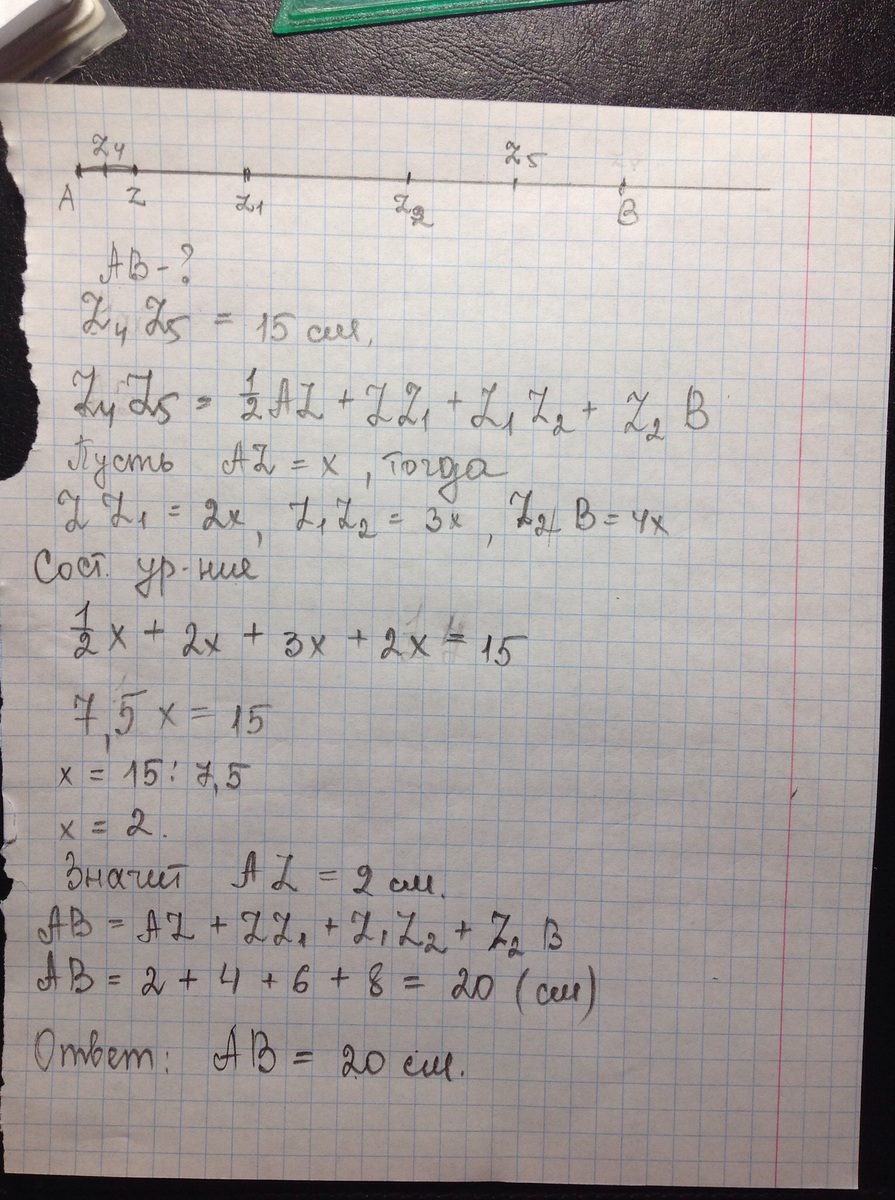 Z₄ Z₅
A Z Z₁ Z₂ B
AB - ?
Z₄ Z₅ = 15 см,
Z₄ Z₅ = 1/2 AZ + ZZ₁ + Z₁ Z₂ + Z₂ B
Пусть AZ = x , тогда
Z Z₁ = 2x, Z₁ Z₂ = 3x , Z₂ B = 4x
Сост. ур-ние
1/2 x + 2x + 3x + 2x = 15
7,5 x = 15
x = 15 : 7,5
x = 2.
Значит AZ = 2 см.
AB = AZ + ZZ₁ + Z₁ Z₂ + Z₂ B
AB = 2 + 4 + 6 + 8 = 20 (см)
Ответ: AB = 20 см.